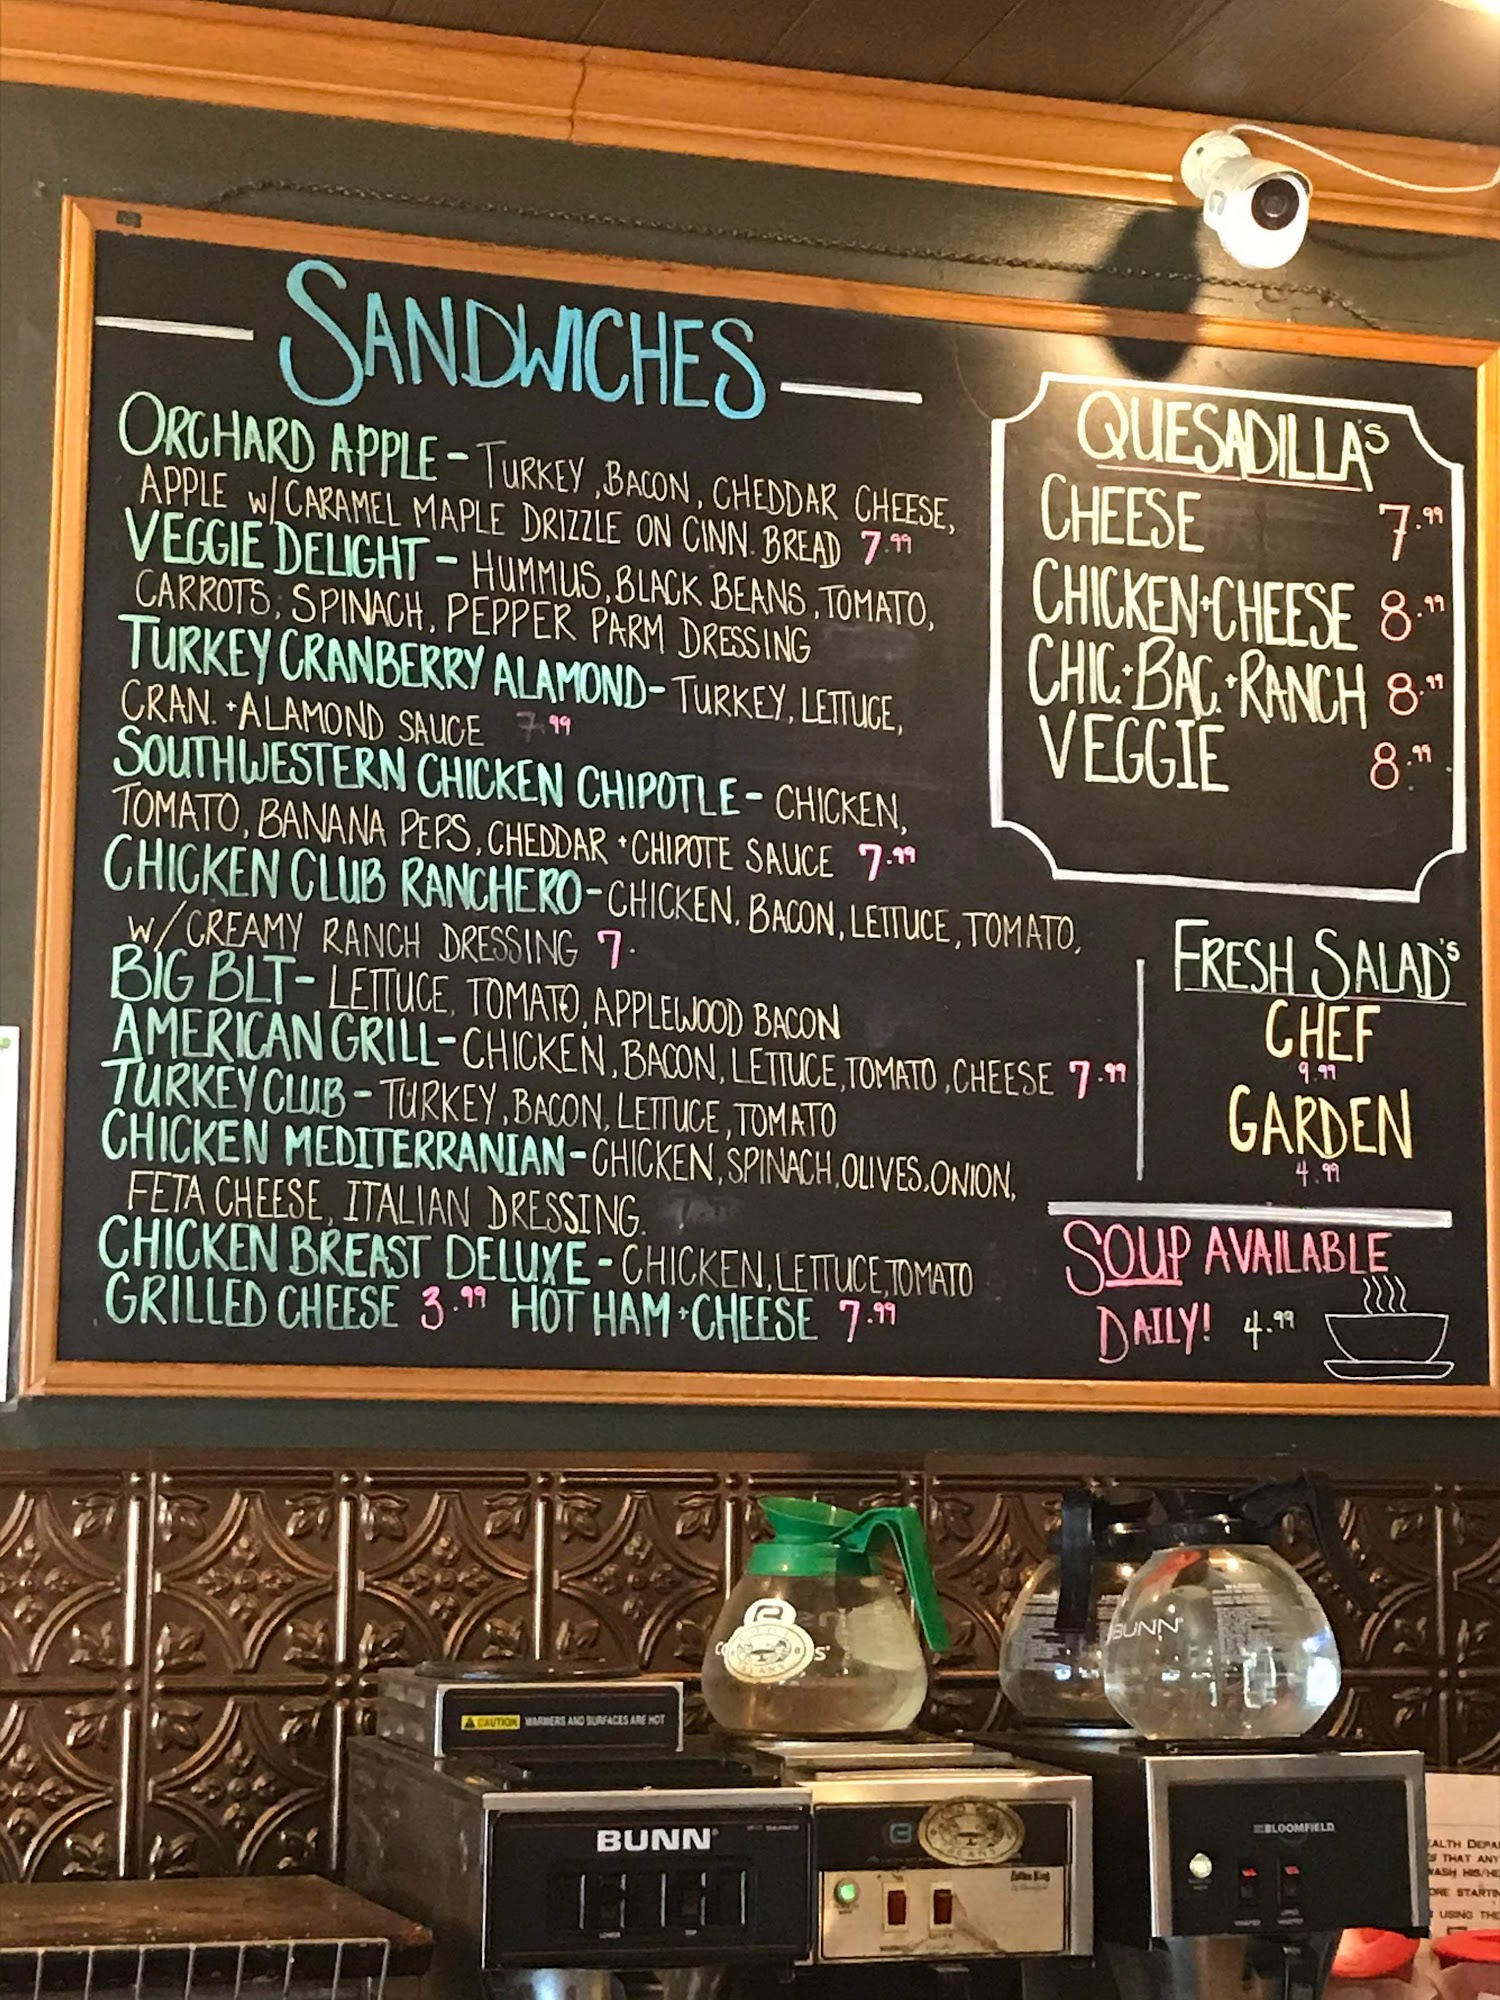 SANDWICHES
ORCHARD APPLE - TURKEY, BACON, CHEDDAR CHEESE,
APPLE W/ CARAMEL MAPLE DRIZZLE ON CINN. BREAD 7.99
VEGGIE DELIGHT - HUMMUS, BLACK BEANS, TOMATO,
CARROTS, SPINACH, PEPPER PARM DRESSING
TURKEY CRANBERRY ALAMOND - TURKEY, LETTUCE,
CRAN. + ALAMOND SAUCE 7.99
SOUTHWESTERN CHICKEN CHIPOTLE - CHICKEN,
TOMATO, BANANA PEPS, CHEDDAR + CHIPOTE SAUCE 7.99
CHICKEN CLUB RANCHERO - CHICKEN, BACON, LETTUCE, TOMATO,
W/ CREAMY RANCH DRESSING 7.
BIG BLT - LETTUCE, TOMATO, APPLEWOOD BACON
AMERICAN GRILL - CHICKEN, BACON, LETTUCE, TOMATO, CHEESE 7.99
TURKEY CLUB - TURKEY, BACON, LETTUCE, TOMATO
CHICKEN MEDITERRANIAN - CHICKEN, SPINACH, OLIVES, ONION,
FETA CHEESE, ITALIAN DRESSING.
CHICKEN BREAST DELUXE - CHICKEN, LETTUCE, TOMATO
GRILLED CHEESE 3.99 HOT HAM + CHEESE 7.99
QUESADILLA'S
CHEESE 7.99
CHICKEN + CHEESE 8.99
CHIC. + BAC. + RANCH 8.99
VEGGIE 8.99
FRESH SALAD'S
CHEF
9.99
GARDEN
4.99
SOUP AVAILABLE
DAILY! 4.99
BUNN
CAUTION WARMERS AND SURFACES ARE HOT
BUNN
BLOOMFIELD